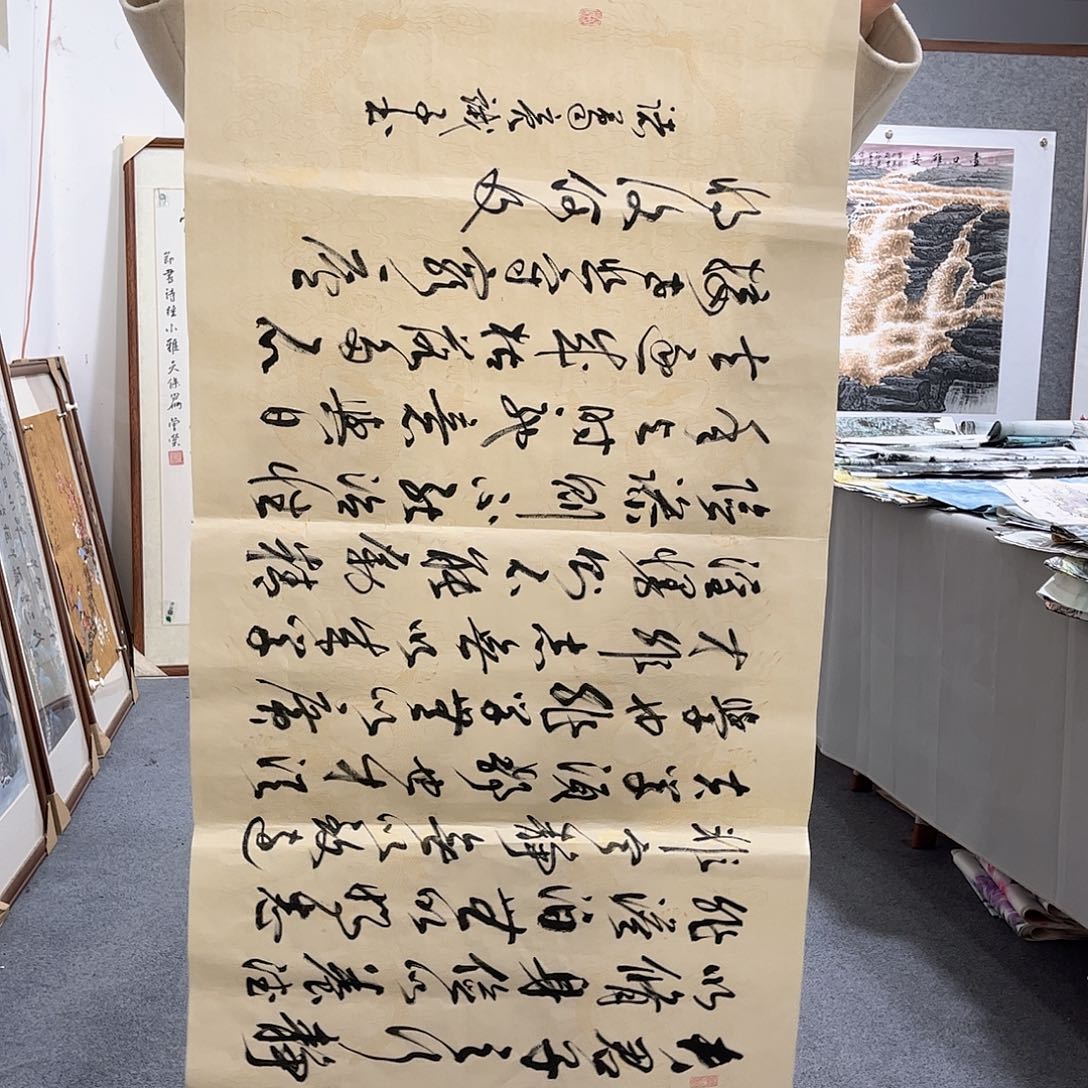 夫君子之行靜
以修身儉以養德
非澹泊無以明志
非寧靜無以致遠
夫学須靜也才須
學也非学無以廣
才非志無以成学
淫慢则不能勵精
險躁則不能治性
年与时馳意與日
去遂成枯落多不
接世悲守窮廬
將復何及
諸葛亮诫子書
節書诗經小雅天保篇
壺口雄姿